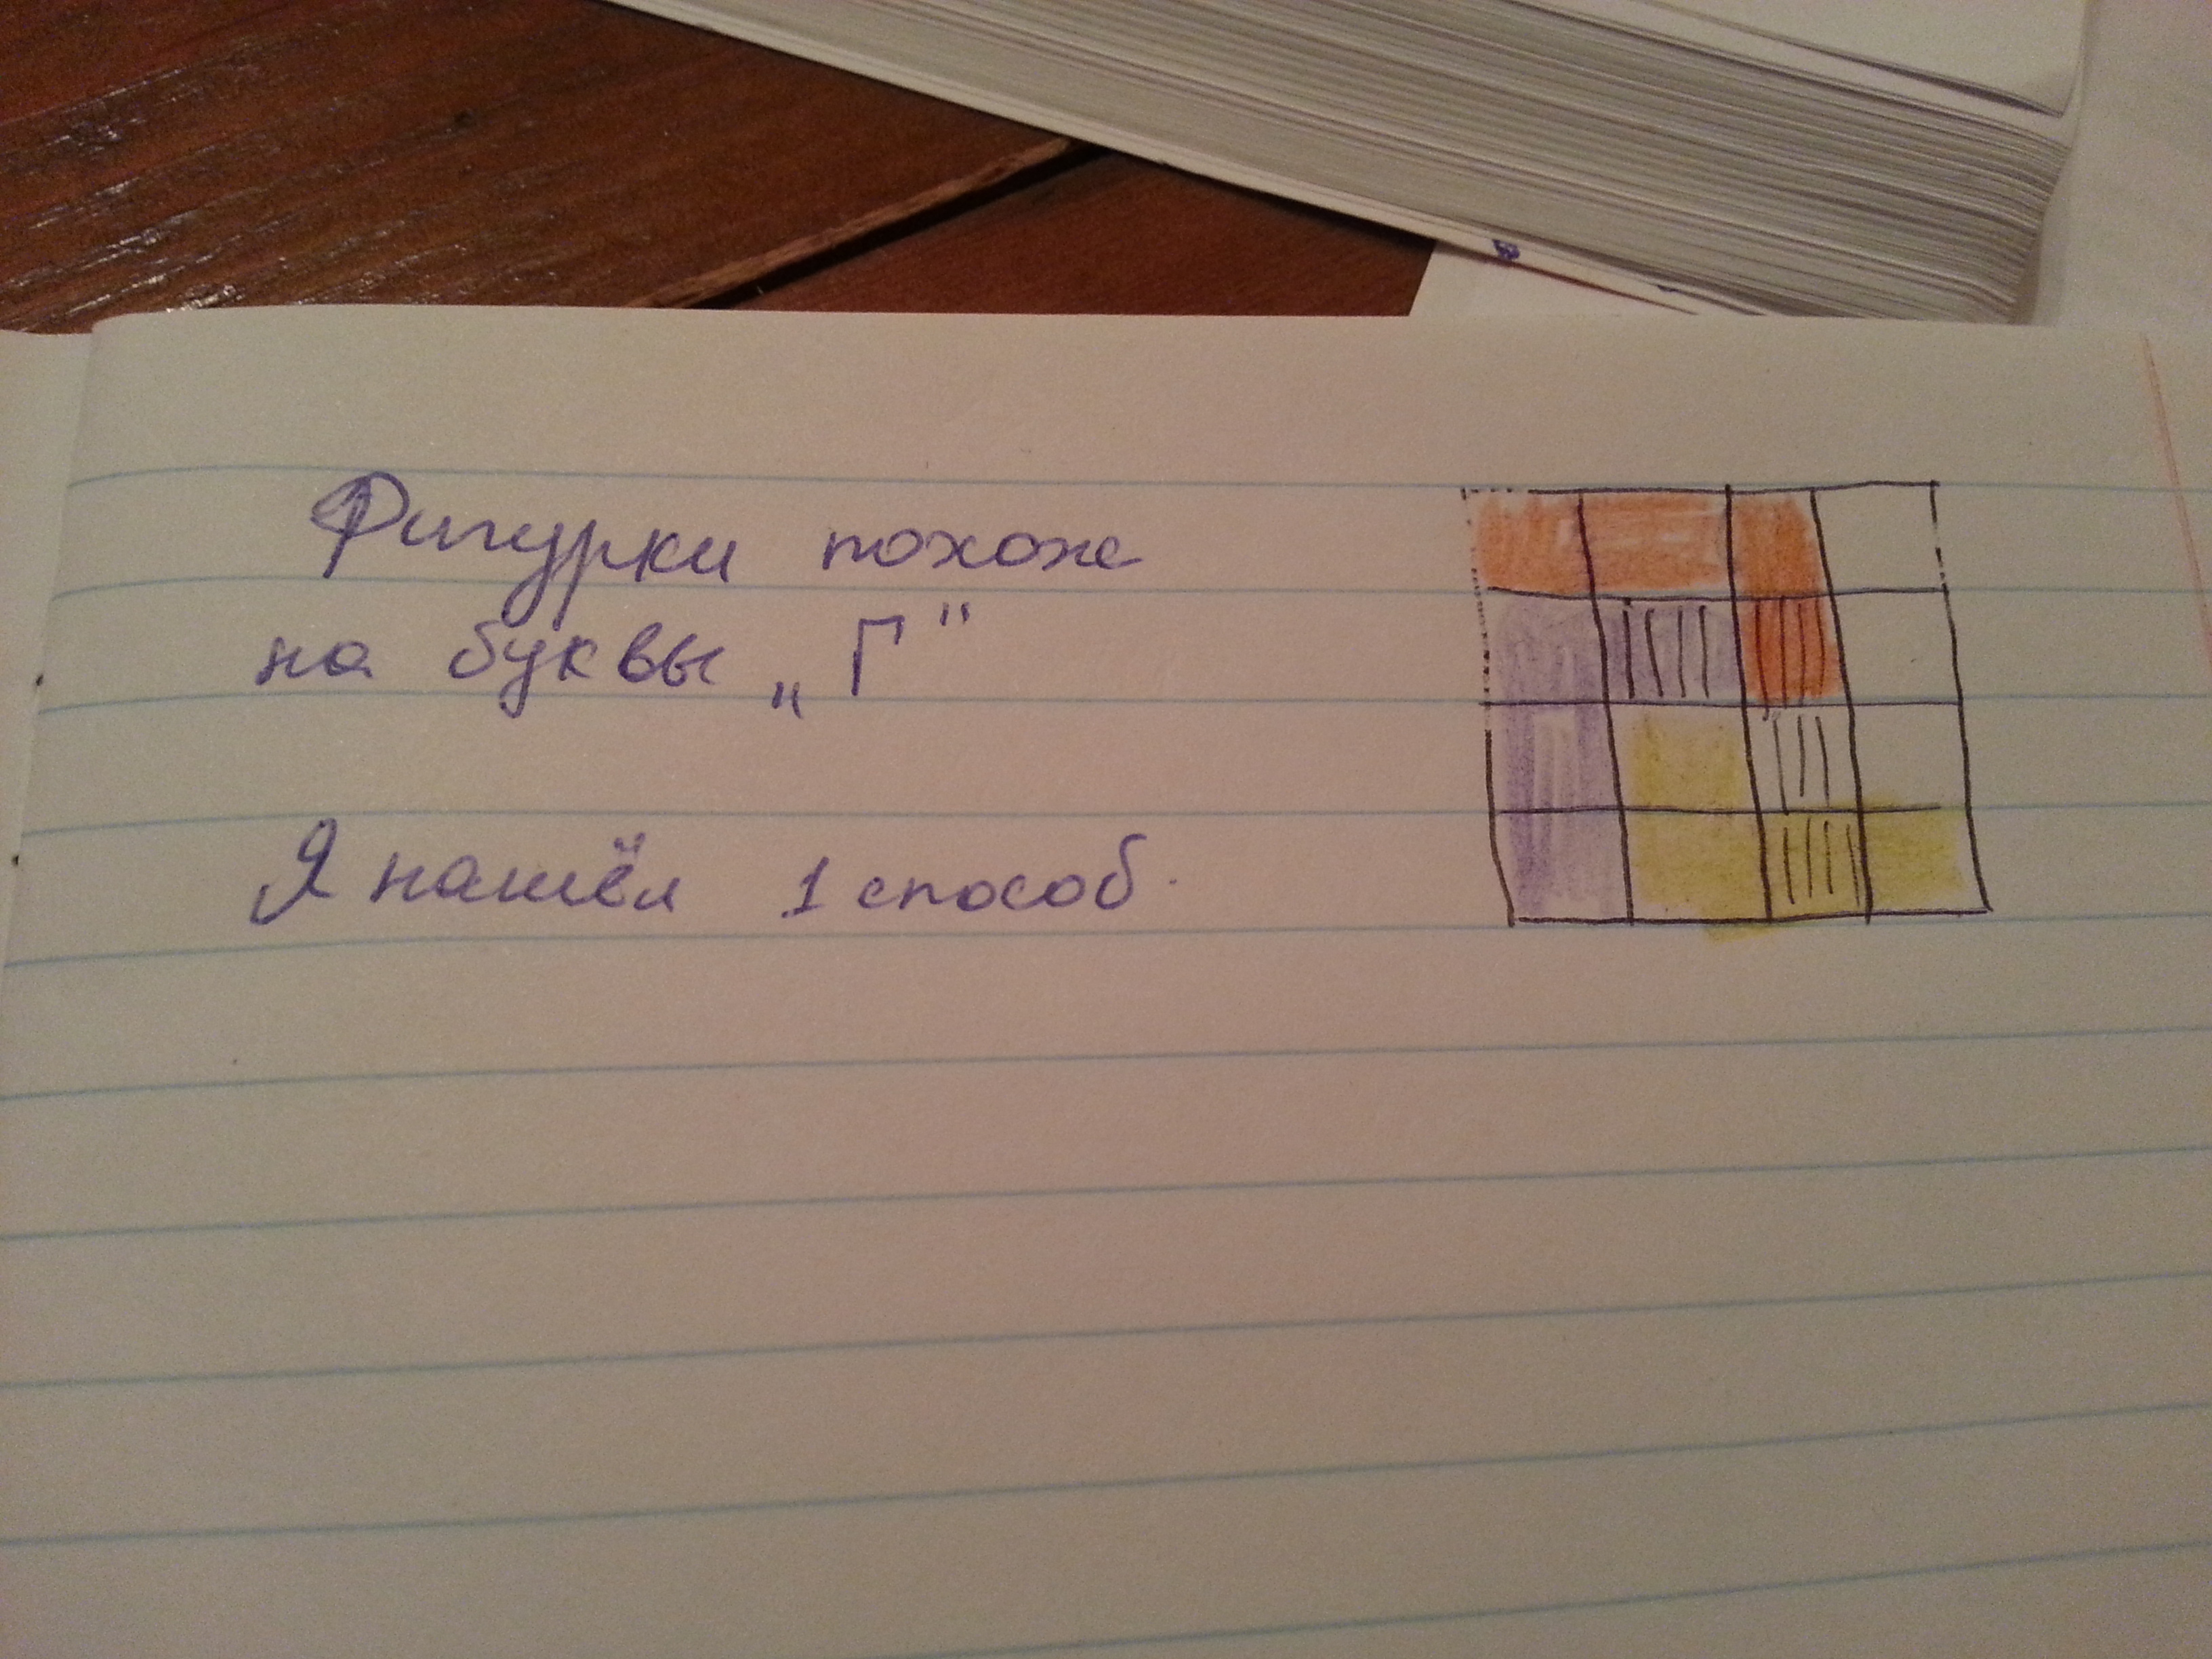 Фигурки похоже
на буквы „Г"
Я нашёл 1 способ.